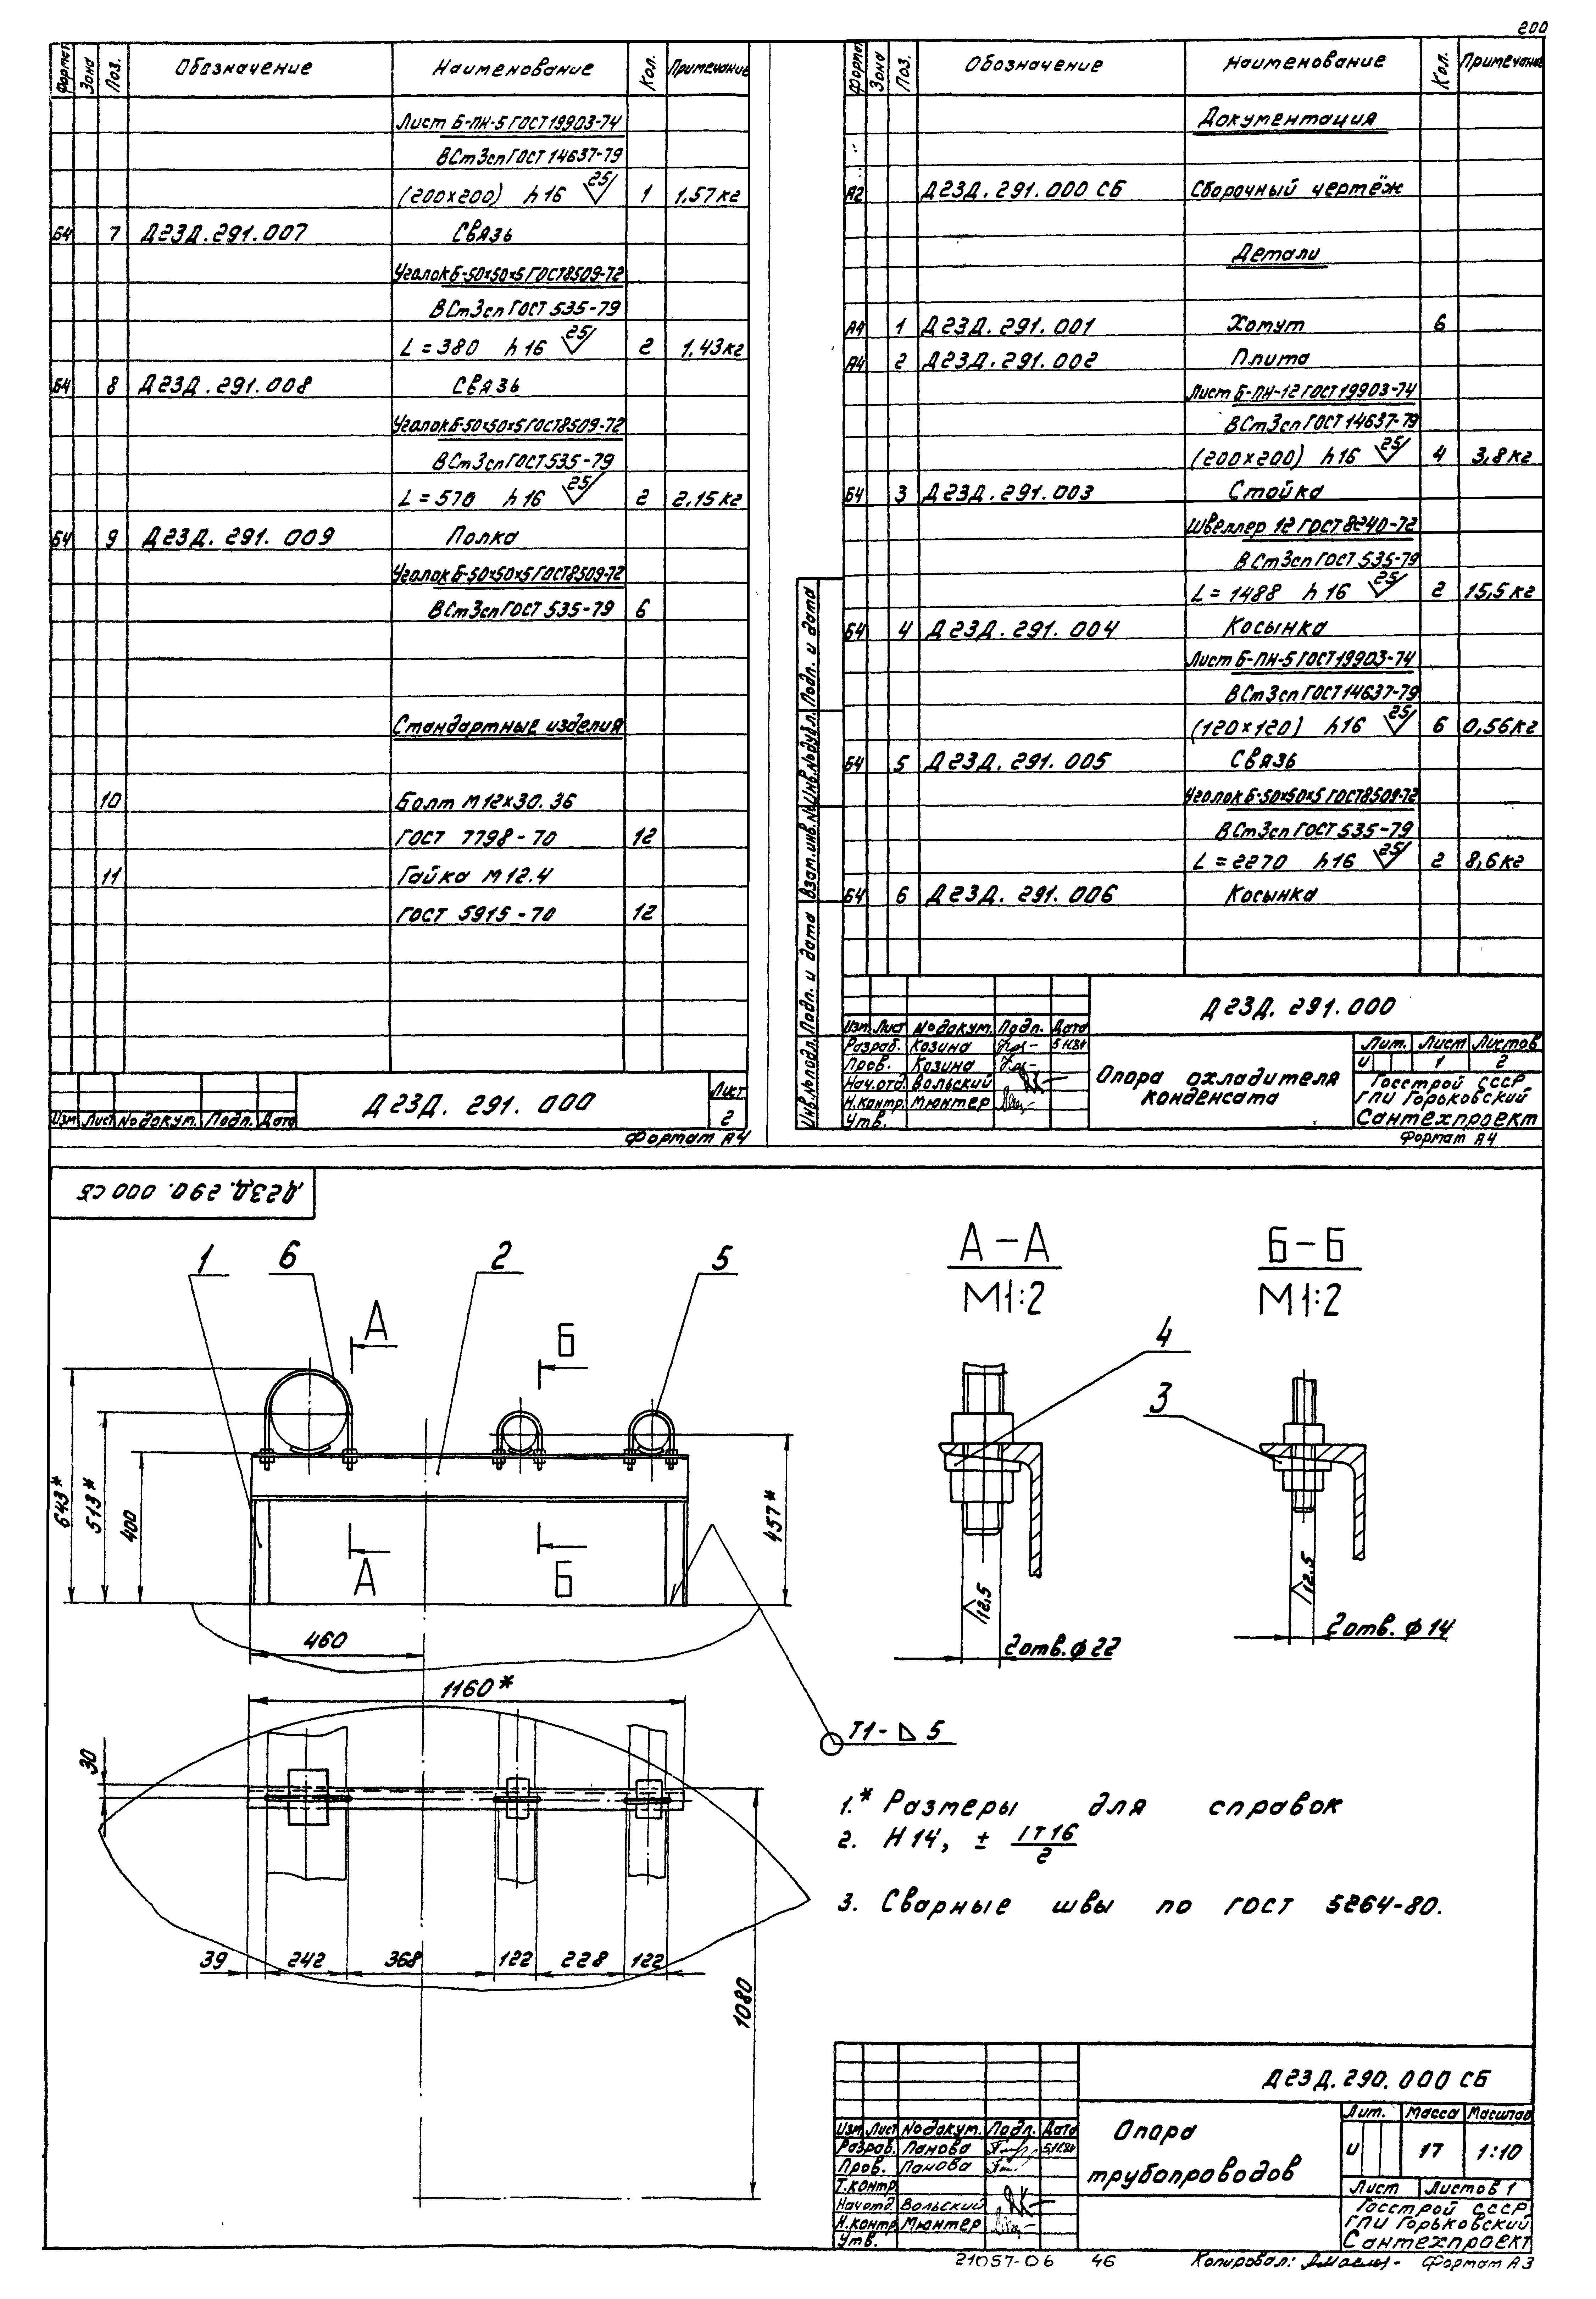 200
Формат Зона Поз. Обозначение Наименование Кол. Примечание
Лист Б-ПН-5 ГОСТ 19903-74
ВСт3сп ГОСТ 14637-79
(200×200) h16 25 1 1,57кг
Б4 7 Д23Д.291.007 Связь
Уголок Б-50×50×5 ГОСТ 8509-72
ВСт3сп ГОСТ 535-79
L=380 h16 25 2 1,43кг
Б4 8 Д23Д.291.008 Связь
Уголок Б-50×50×5 ГОСТ 8509-72
ВСт3сп ГОСТ 535-79
L=570 h16 25 2 2,15кг
Б4 9 Д23Д.291.009 Полка
Уголок Б-50×50×5 ГОСТ 8509-72
ВСт3сп ГОСТ 535-79 6
Стандартные изделия
10 Болт М12×30.36
ГОСТ 7798-70 12
11 Гайка М12.4
ГОСТ 5915-70 12
Изм Лист №докум. Подп. Дата
Д23Д.291.000
Лист
2
Формат А4
Формат Зона Поз. Обозначение Наименование Кол. Примечание
Документация
А2 Д23Д.291.000 СБ Сборочный чертёж
Детали
А4 1 Д23Д.291.001 Хомут 6
А4 2 Д23Д.291.002 Плита
Лист Б-ПН-12 ГОСТ 19903-74
ВСт3сп ГОСТ 14637-79
(200×200) h16 25 4 3,8кг
Б4 3 Д23Д.291.003 Стойка
Швеллер 12 ГОСТ 8240-72
ВСт3сп ГОСТ 535-79
L=1488 h16 25 2 15,5кг
Б4 4 Д23Д.291.004 Косынка
Лист Б-ПН-5 ГОСТ 19903-74
ВСт3сп ГОСТ 14637-79
(120×120) h16 25 6 0,56кг
Б4 5 Д23Д.291.005 Связь
Уголок Б-50×50×5 ГОСТ 8509-72
ВСт3сп ГОСТ 535-79
L=2270 h16 25 2 8,6кг
Б4 6 Д23Д.291.006 Косынка
Инв.№подл. Подп. и дата Взам.инв.№ Инв.№дубл. Подп. и дата
Д23Д.291.000
Изм. Лист №докум. Подп. Дата
Разраб. Козина
Пров. Козина
Нач.отд. Вольский
Н.контр. Мюнтер
Утв.
Опора охладителя
конденсата
Лит. Лист Листов
И 1 2
Госстрой СССР
ГПИ Горьковский
Сантехпроект
Формат А4
Д23Д.290.000 СБ
1 6 2 5
А Б
А Б
643*
513*
400
457*
460
1160*
30
39 242 368 122 228 122
1080
Т1-⊿5
А-А
М1:2
4
12,5
2отв.ϕ22
Б-Б
М1:2
3
12,5
2отв.ϕ14
1.* Размеры для справок
2. Н14, ± IT16/2
3. Сварные швы по ГОСТ 5264-80.
Д23Д.290.000 СБ
Изм Лист №докум. Подп. Дата
Разраб. Панова
Пров. Панова
Т.контр.
Нач.отд. Вольский
Н.контр. Мюнтер
Утв.
Опора
трубопроводов
Лит. Масса Масштаб
И 17 1:10
Лист Листов 1
Госстрой СССР
ГПИ Горьковский
Сантехпроект
21057-06 46 Копировал: Формат А3